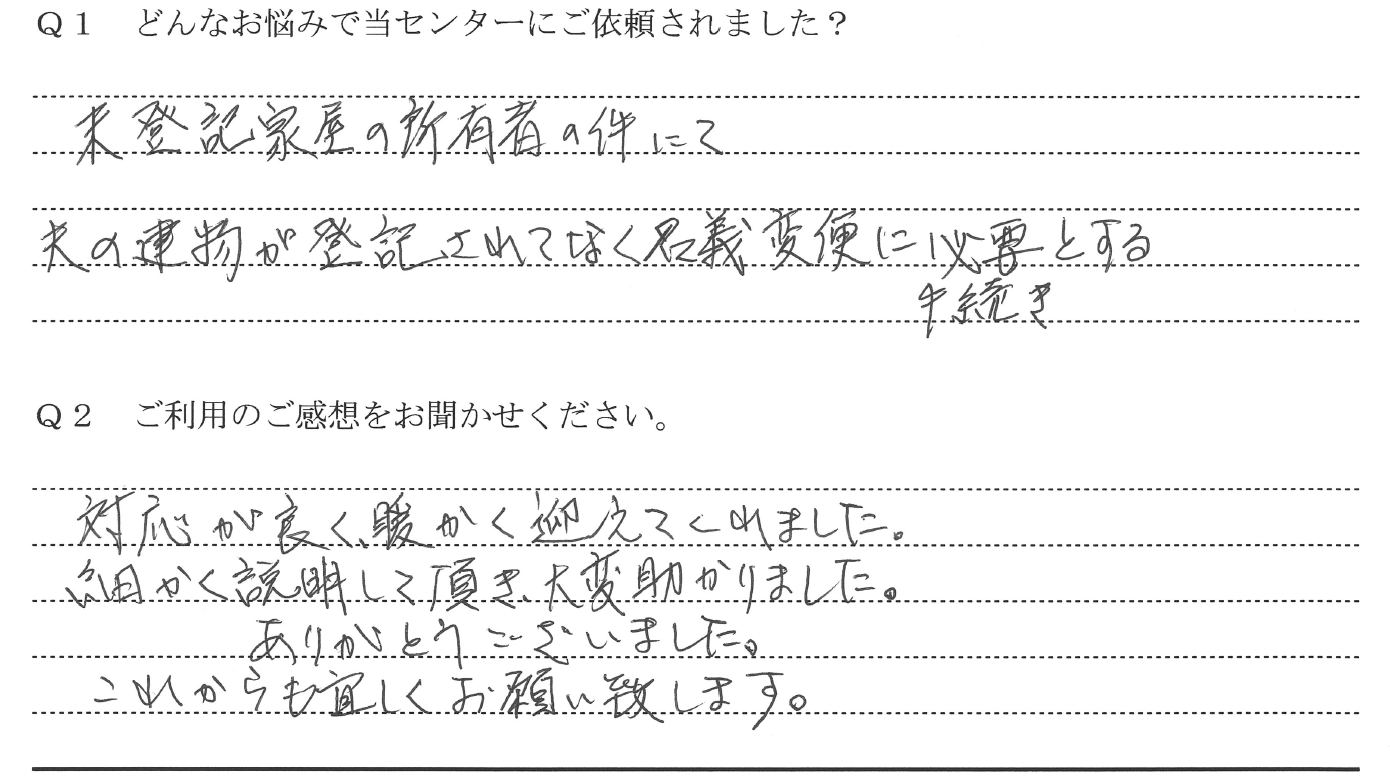 Q1 どんなお悩みで当センターにご依頼されました?
未登記家屋の所有者の件にて
夫の建物が登記されてなく名義変便に必要とする
手続き
Q2 ご利用のご感想をお聞かせください。
対応が良く、暖かく迎えてくれました。
細かく説明して頂き、大変助かりました。
ありがとうございました。
これからも宜しくお願い致します。